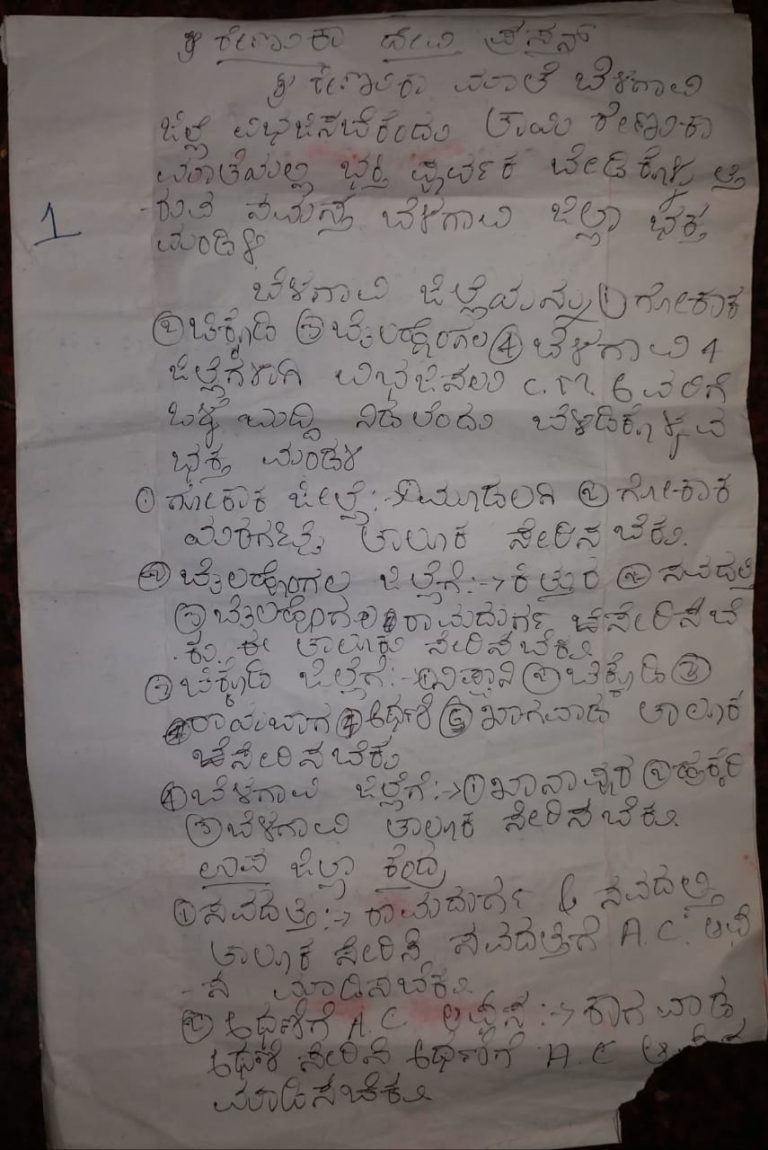 ಶ್ರೀ ರೇಣುಕಾ ದೇವಿ ಪ್ರಸನ್
ಶ್ರೀ ರೇಣುಕಾ ಮಾತೆ ಬೆಳಗಾವಿ
ಜಿಲ್ಲೆ ವಿಭಜಿಸಬೆಕೆಂದು ತಾಯಿ ರೇಣುಕಾ
ಮಾತೆಯಲ್ಲಿ ಭಕ್ತಿ ಪೂರ್ವಕ ಬೇಡಿಕೊಳ್ಳುತ್ತಿ
1 -ರುವ ಸಮಸ್ತ ಬೆಳಗಾವಿ ಜಿಲ್ಲಾ ಭಕ್ತ
ಮಂಡಳಿ
ಬೆಳಗಾವಿ ಜಿಲ್ಲೆಯನ್ನು ① ಗೋಕಾಕ
② ಚಿಕ್ಕೊಡಿ ③ ಬೈಲಹೊಂಗಲ ④ ಬೆಳಗಾವಿ 4
ಜಿಲ್ಲೆಗಳಾಗಿ ವಿಭಜಿಸಲು C.M ಅವರಿಗೆ
ಒಳ್ಳೆ ಬುದ್ದಿ ನಿಡಲೆಂದು ಬೆಡಿಕೊಳ್ಳುವ
ಭಕ್ತ ಮಂಡಳಿ
① ಗೋಕಾಕ ಜಿಲ್ಲೆ:-> ① ಮೂಡಲಗಿ ② ಗೋಕಾಕ
ತಾಲೂಕ ಸೇರಿಸಬೆಕು.
② ಬೈಲಹೊಂಗಲ ಜಿಲ್ಲೆಗೆ:-> ಕಿತ್ತುರ ② ಸವದತ್ತಿ
③ ಬೈಲಹೊಂಗಲ ④ ರಾಮದುರ್ಗ ಸೇರಿಸಬೆ
ಕು. ಈ ತಾಲೂಕು ಸೇರಿಸಬೆಕು
③ ಚಿಕ್ಕೊಡಿ ಜಿಲ್ಲೆಗೆ:-> ① ನಿಪ್ಪಾಣಿ ② ಚಿಕ್ಕೊಡಿ ③
ರಾಯಬಾಗ ④ ಅಥಣಿ ⑤ ಖಾಗವಾಡ ತಾಲೂಕ
ಸೇರಿಸಬೆಕು
④ ಬೆಳಗಾವಿ ಜಿಲ್ಲೆಗೆ:-> ① ಖಾನಾಪೂರ ② ಹುಕ್ಕೆರಿ
③ ಬೆಳಗಾವಿ ತಾಲೂಕ ಸೇರಿಸಬೆಕು.
ಉಪ ಜಿಲ್ಲಾ ಕೆಂದ್ರ
① ಸವದತ್ತಿ:-> ರಾಮದುರ್ಗ & ಸವದತ್ತಿ
ತಾಲೂಕ ಸೇರಿಸಿ ಸವದತ್ತಿಗೆ A.C. ಆಫಿ
-ಸ ಮಾಡಿಸಬೆಕು.
② ಅಥಣಿಗೆ A.C. ಆಫೀಸ:-> ಕಾಗವಾಡ
ಅಥಣಿ ಸೇರಿಸಿ ಅಥಣಿಗೆ A.C
ಮಾಡಿಸಬೆಕು.